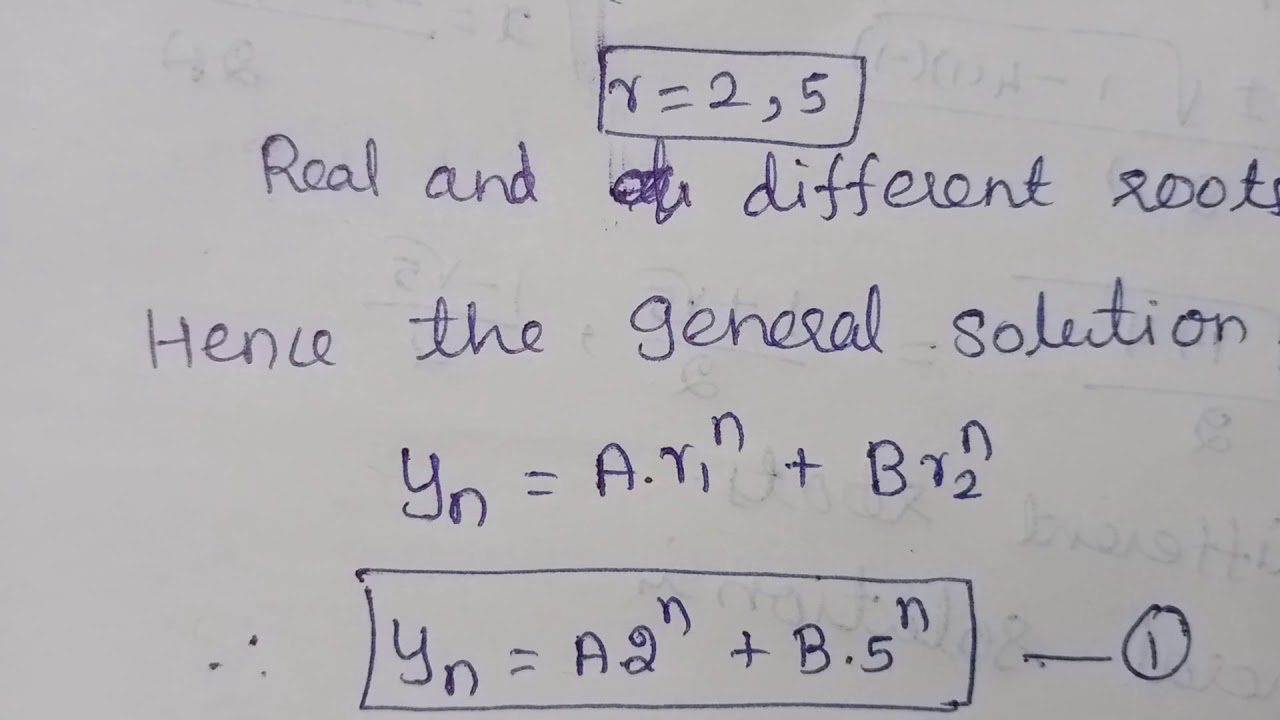 r = 2, 5
Real and different roots
Hence the general solution
yₙ = A.r₁ⁿ + Br₂ⁿ
∴ yₙ = A2ⁿ + B.5ⁿ — ①